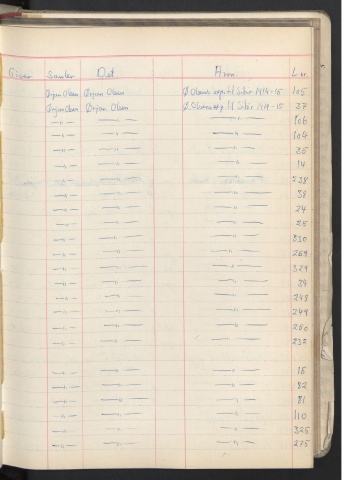 Giver Samler Det Anm. L nr.
Ørjan Olsen Ørjan Olsen Ø. Olsens exp. til Sibir 1914-15 105
Ørjan Olsen Ørjan Olsen Ø. Olsens exp. til Sibir 1914-15 37
—"— —"— —"— 106
—"— —"— —"— 104
—"— —"— —"— 35
—"— —"— —"— 14
—"— —"— —"— 538
—"— —"— —"— 38
—"— —"— —"— 24
—"— —"— —"— 25
—"— —"— —"— 330
—"— —"— —"— 269
—"— —"— —"— 329
—"— —"— —"— 39
—"— —"— —"— 248
—"— —"— —"— 249
—"— —"— —"— 260
—"— —"— —"— 232
—"— —"— —"— 16
—"— —"— —"— 82
—"— —"— —"— 81
—"— —"— —"— 110
—"— —"— —"— 325
—"— —"— —"— 275